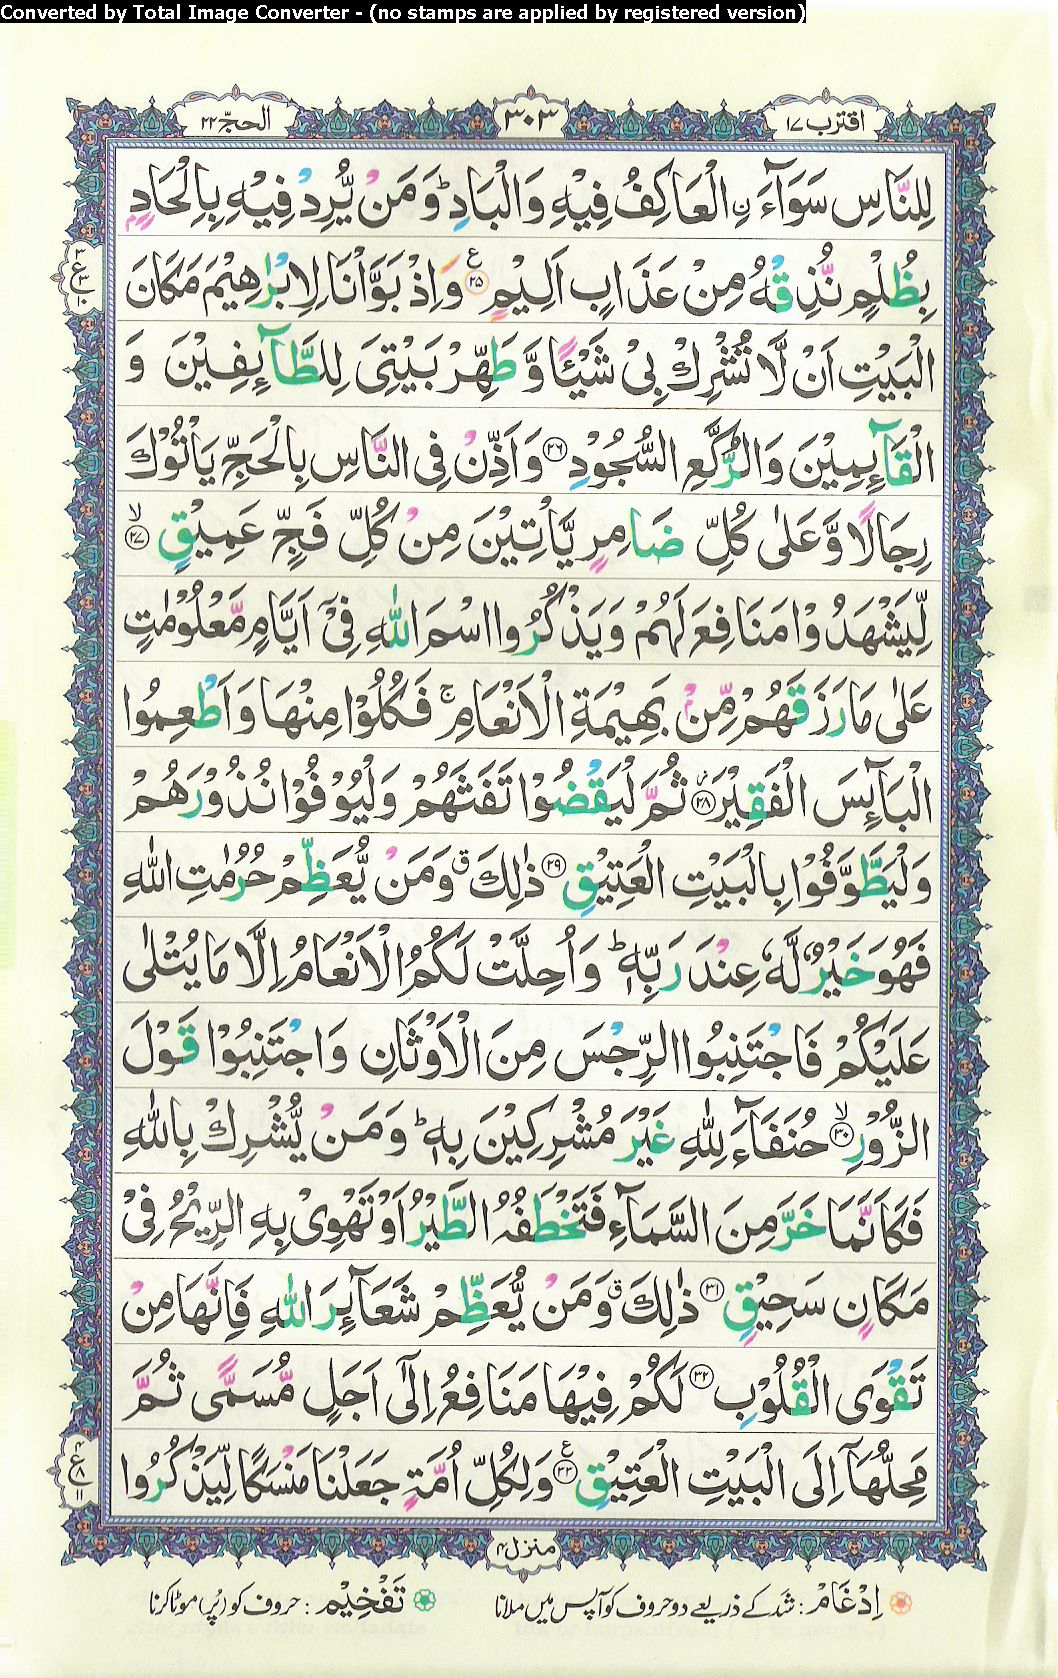 Converted by Total Image Converter - (no stamps are applied by registered version)
اقترب ١٧
٣٠٣
الحجّ ٢٢
لِلنَّاسِ سَوَآءَ ۨالْعَاكِفُ فِيْهِ وَالْبَادِ ؕ وَ مَنْ يُّرِدْ فِيْهِ بِاِلْحَادٍۭ
بِظُلْمٍ نُّذِقْهُ مِنْ عَذَابٍ اَلِيْمٍ ﴿٢٥﴾ ع وَ اِذْ بَوَّاْنَا لِاِبْرٰهِيْمَ مَكَانَ
الْبَيْتِ اَنْ لَّا تُشْرِكْ بِيْ شَيْـًٔا وَّ طَهِّرْ بَيْتِيَ لِلطَّآئِفِيْنَ وَ
الْقَآئِمِيْنَ وَ الرُّكَّعِ السُّجُوْدِ ﴿٢٦﴾ وَ اَذِّنْ فِي النَّاسِ بِالْحَجِّ يَاْتُوْكَ
رِجَالًا وَّ عَلٰى كُلِّ ضَامِرٍ يَّاْتِيْنَ مِنْ كُلِّ فَجٍّ عَمِيْقٍ ﴿٢٧﴾ ۙ
لِّيَشْهَدُوْا مَنَافِعَ لَهُمْ وَ يَذْكُرُوا اسْمَ اللّٰهِ فِيْۤ اَيَّامٍ مَّعْلُوْمٰتٍ
عَلٰى مَا رَزَقَهُمْ مِّنْۢ بَهِيْمَةِ الْاَنْعَامِ ۚ فَكُلُوْا مِنْهَا وَ اَطْعِمُوا
الْبَآئِسَ الْفَقِيْرَ ﴿٢٨﴾ ؗ ثُمَّ لْيَقْضُوْا تَفَثَهُمْ وَ لْيُوْفُوْا نُذُوْرَهُمْ
وَ لْيَطَّوَّفُوْا بِالْبَيْتِ الْعَتِيْقِ ﴿٢٩﴾ ذٰلِكَ ۗ وَ مَنْ يُّعَظِّمْ حُرُمٰتِ اللّٰهِ
فَهُوَ خَيْرٌ لَّهٗ عِنْدَ رَبِّهٖ ؕ وَ اُحِلَّتْ لَكُمُ الْاَنْعَامُ اِلَّا مَا يُتْلٰى
عَلَيْكُمْ فَاجْتَنِبُوا الرِّجْسَ مِنَ الْاَوْثَانِ وَ اجْتَنِبُوْا قَوْلَ
الزُّوْرِ ﴿٣٠﴾ ۙ حُنَفَآءَ لِلّٰهِ غَيْرَ مُشْرِكِيْنَ بِهٖ ؕ وَ مَنْ يُّشْرِكْ بِاللّٰهِ
فَكَاَنَّمَا خَرَّ مِنَ السَّمَآءِ فَتَخْطَفُهُ الطَّيْرُ اَوْ تَهْوِيْ بِهِ الرِّيْحُ فِيْ
مَكَانٍ سَحِيْقٍ ﴿٣١﴾ ذٰلِكَ ۗ وَ مَنْ يُّعَظِّمْ شَعَآئِرَ اللّٰهِ فَاِنَّهَا مِنْ
تَقْوَى الْقُلُوْبِ ﴿٣٢﴾ لَكُمْ فِيْهَا مَنَافِعُ اِلٰۤى اَجَلٍ مُّسَمًّى ثُمَّ
مَحِلُّهَاۤ اِلَى الْبَيْتِ الْعَتِيْقِ ﴿٣٣﴾ ع وَ لِكُلِّ اُمَّةٍ جَعَلْنَا مَنْسَكًا لِّيَذْكُرُوا
٣ ع ٣ ١٠
٤ ع ٨ ١١
منزل ٤
اِدْغَامْ : شَد کے ذریعے دو حروف کو آپس میں ملانا
تَفْخِيْم : حروف کو (پُر) موٹا کرنا